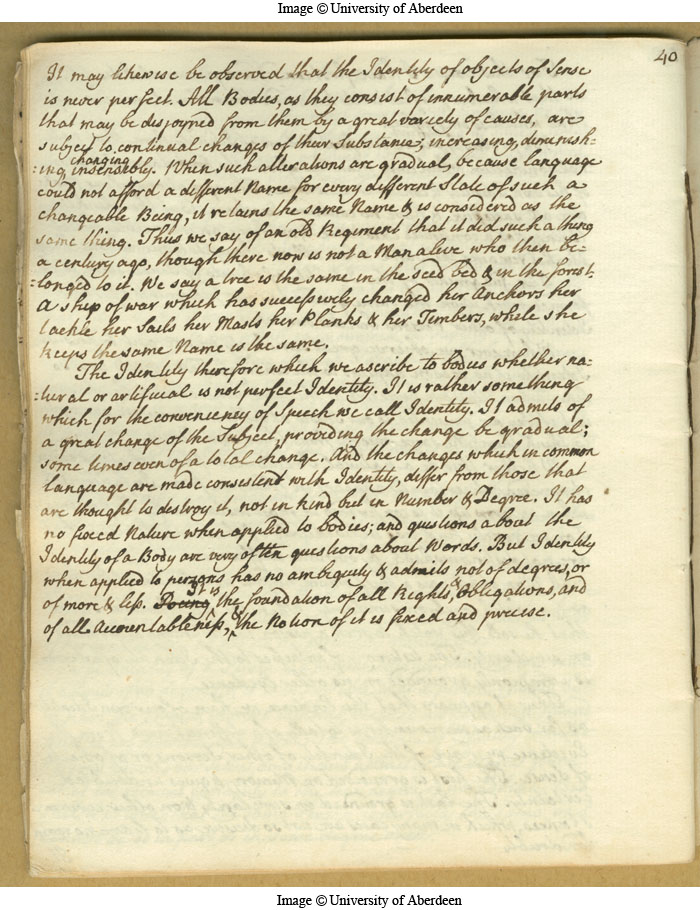 Image © University of Aberdeen
40
It may likewise be observed that the Identity of objects of Sense
is never perfect. All Bodies, as they consist of innumerable parts
that may be disjoyned from them by a great variety of causes, are
subject to continual changes of their Substance; increasing, diminish-
changing
:ing, insensibly. When such alterations are gradual, because language
could not afford a different Name for every different State of such a
changeable Being, it retains the same Name & is considered as the
same thing. Thus we say of an old Regiment that it did such a thing
a century ago, though there now is not a Man alive who then be=
:longed to it. We say a tree is the same in the seed bed & in the forest.
A ship of war which has successively changed her Anchors her
tackle her Sails her Masts her Planks & her Timbers, while she
keeps the same Name is the same.
The Identity therefore which we ascribe to bodies whether na:
:tural or artificial is not perfect Identity. It is rather something
which for the conveniency of Speech we call Identity. It admits of
a great change of the Subject, providing the change be gradual;
some times even of a total change. And the changes which in common
language are made consistent with Identity, differ from those that
are thought to destroy it, not in kind but in Number & Degree. It has
no fixed Nature when applied to bodies; and questions about the
Identity of a Body are very often questions about Words. But Identity
when applied to persons has no ambiguity & admits not of degrees, or
of more & less. It is the foundation of all Rights, & Obligations, and
of all Accountableness, & the Notion of it is fixed and precise.
Image © University of Aberdeen